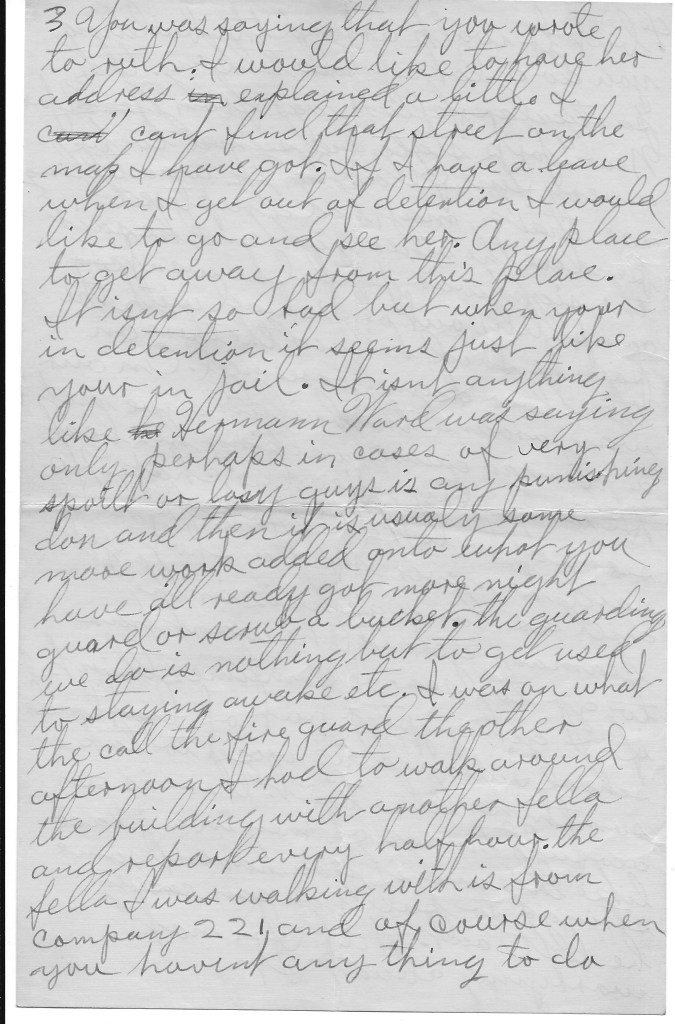 3 You was saying that you wrote
to ruth. I would like to have her
address in explained a little I
can't cant find that street on the
map I have got. If I have a leave
when I get out of detention I would
like to go and see her. Any place
to get away from this place.
It isnt so bad but when your
in detention it seems just like
your in jail. It isnt anything
like he Hermann Ward was saying
only perhaps in cases of very
spoilt or lasy guys is any punishing
don and then it is usualy some
more work added onto what you
have all ready got more night
guard or scrub a bucket. the guarding
we do is nothing but to get used
to staying awake etc. I was on what
the call the fire guard the other
afternoon I had to walk around
the building with another fella
and report every half hour. the
fella I was walking with is from
company 221 and of course when
you havent any thing to do